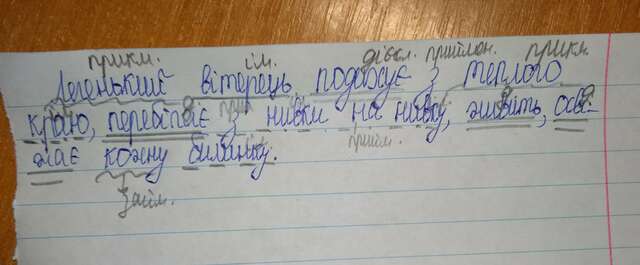 прикм. ім. дієсл. приймен. прикм.
Легенький вітерець подорожує з теплого
краю, перебігає з нивки на нивку, живить, осві-
прий
жає кожну билинку.
прийм.
займ.